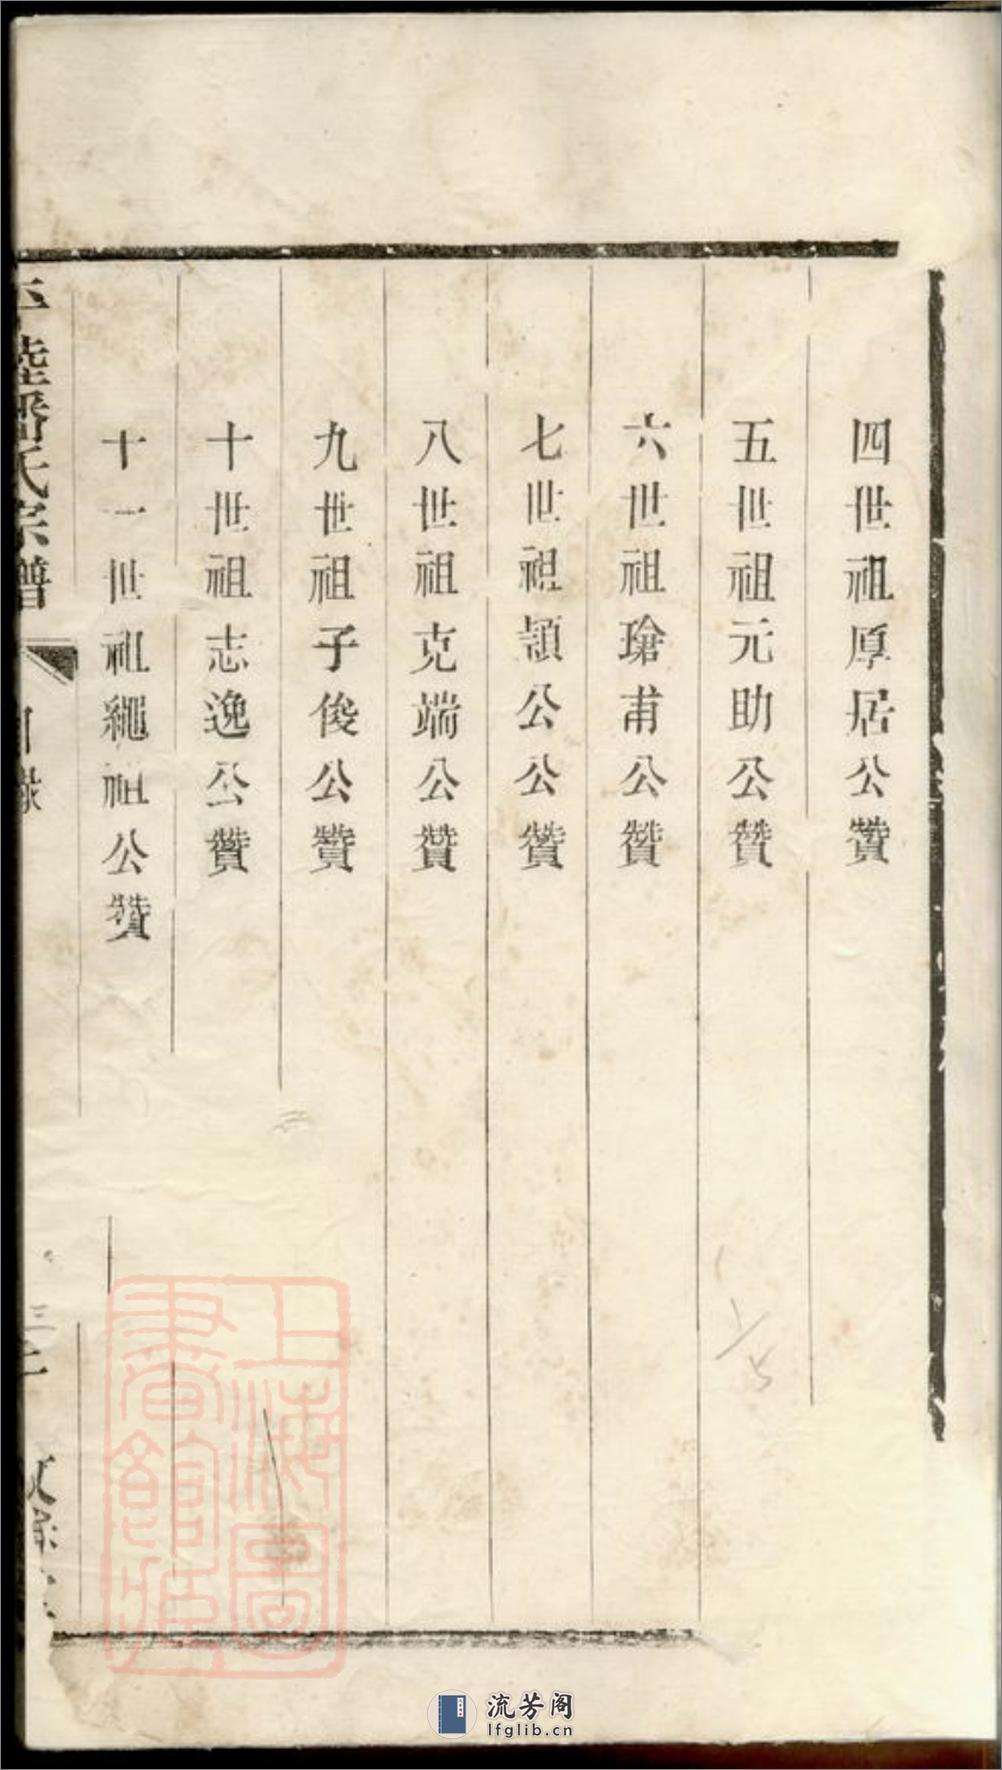 四世祖厚居公贊
五世祖元助公贊
六世祖瑲甫公贊
七世祖顗公公贊
八世祖克端公贊
九世祖子俊公贊
十世祖志逸公贊
十一世祖繩祖公贊
平陸潘氏宗譜
目錄
上海圖書館藏
流芳阁
lfglib.cn